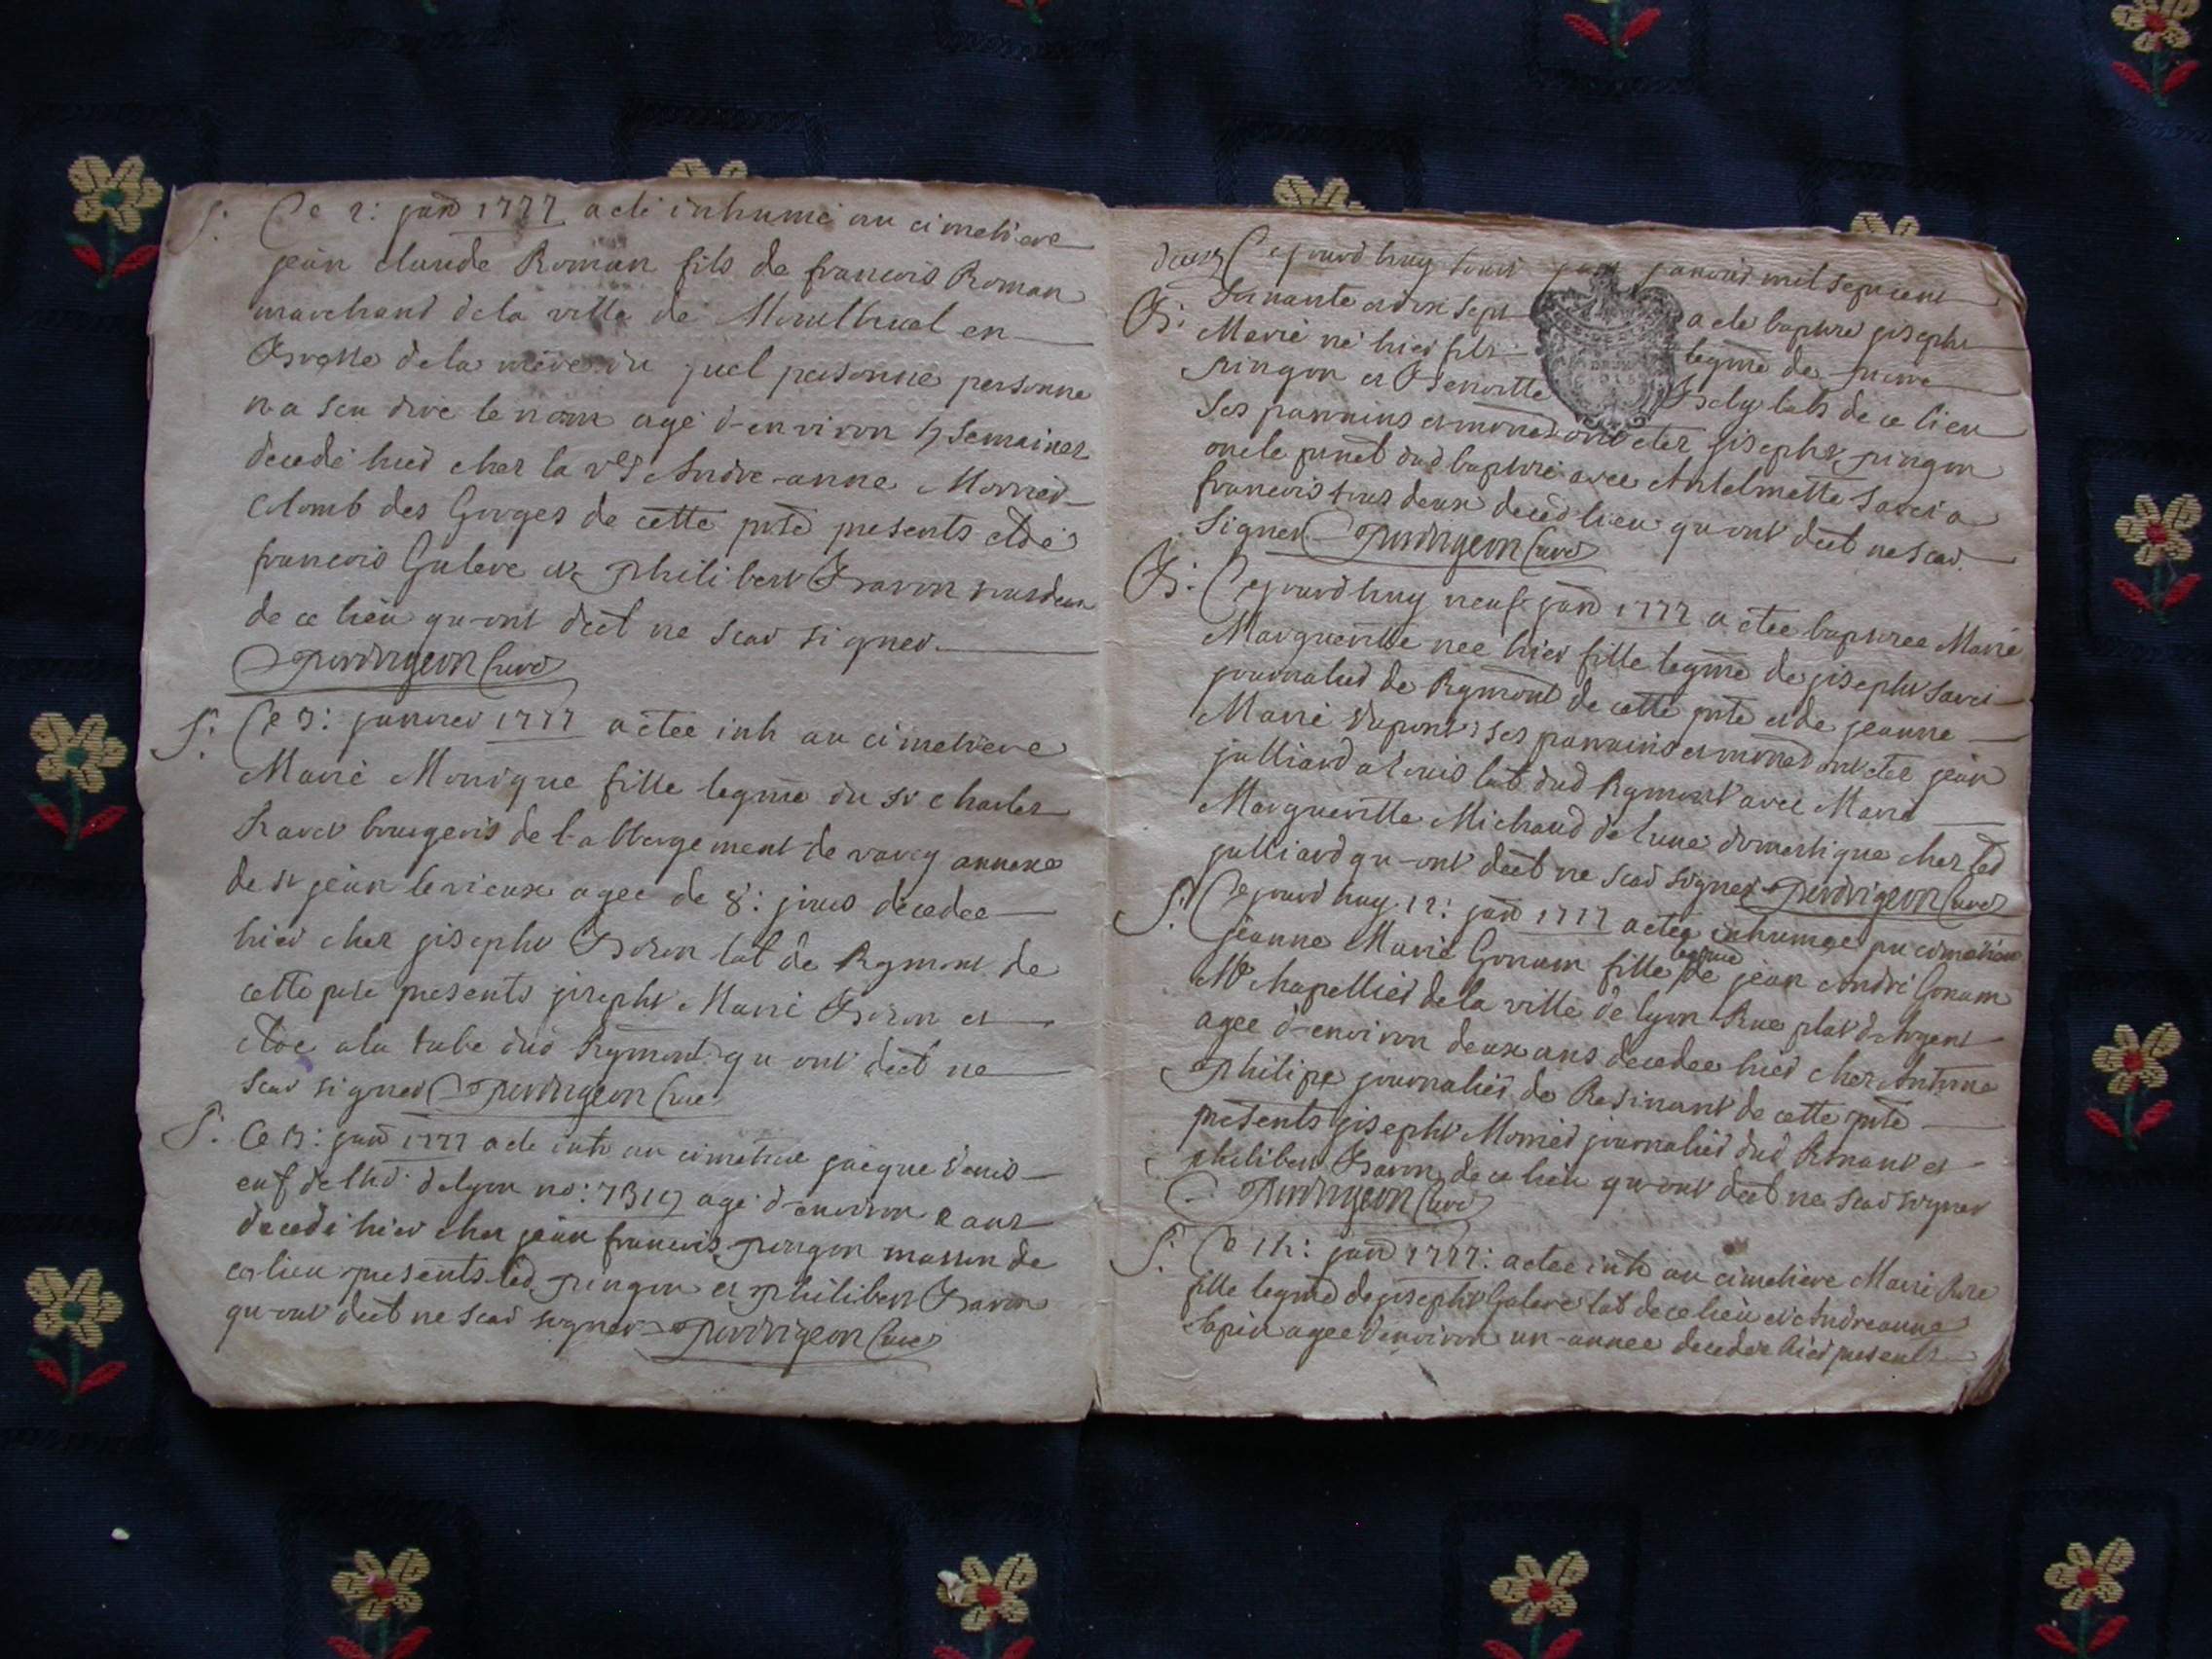 S. Ce 2: janr 1777 a eté inhumé au cimetiere
jean claude Roman fils de francois Roman
marchand de la ville de Montluel en
Bresse de la mere du quel personne personne
n-a sçu dire le nom agé d-environ 7 semaines
decedé hier chez la ve André-anne Mornier
Colomb des Gorges de cette psse presents
francois Galere et philibert Baron tous deux
de ce lieu qu-ont deët ne scav signer.
Perdrigeon Curé
S. Ce 3: janvier 1777 a etée inh au cimetiere
Marie Monique fille legme du sr Charles
Ravet bourgeois de l-abbergement de varey annexe
de st jean le vieux agée de 8: jours decedée
hier chez joseph Boron lab de Rgmont de
cette psse presents joseph Marie Boron et
dud Rgmont qu ont deët ne
scav signer Perdrigeon Curé
S. Ce 13: janr 1777 a eté inh au cimetiere jacque denis
enf de lhd: de lyon no: 7319 agé d-environ 2 ans
decedé hier chez jean francois pingon masson de
ce lieu presents led pingon et philibert Baron
qu-ont deët ne scav signer Perdrigeon Curé
deux Cejourd huy janvier mil sept cent
B. soixante et dix sept a eté baptisé joseph
Marie né hier fils legme de pierre
pingon et Benoitte Bely labs de ce lieu
ses parrains et mares ont etez joseph pingon
oncle patnel dud baptisé avec Antelmette
francois tous deux deced lieu qu-ont deët ne scav.
signer Perdrigeon Curé
B. Cejourd huy neuf janr 1777 a etée baptisée Marie
Margueritte née hier fille legme de joseph
journalier de Rgmont de cette psse et de jeanne
Marie dupont; ses parrains et mares ont etez jean
julliard lab dud Rgmont avec Marie
Margueritte Michaud domestique chez led
julliard qu-ont deët ne scav signer Perdrigeon Curé
S. Cejourd huy 12: janr 1777 a etée inhumée au cimetiere
jeanne Marie Gonam fille legme de jean André Gonam
Me chapellier de la ville de lyon Rue plat d-Argent
agée d-environ deux ans decedée hier chez Antoine
philipe journalier de Resinant de cette psse
presents joseph Mornier journalier dud Resinant et
philibert Baron de ce lieu qu-ont deët ne scav signer
Perdrigeon Curé
S. Ce janr 1777: a etée inh au cimetiere Marie Rose
fille legme de joseph Galere lab de ce lieu et Andreanne
Sapin agée d'environ un-année decedée hier presents